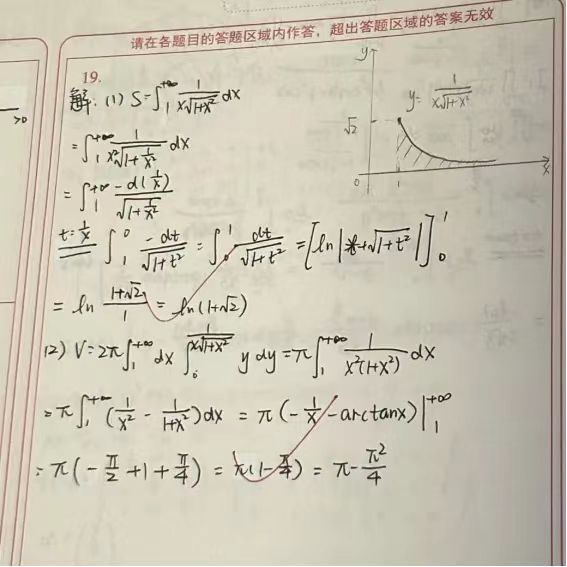 请在各题目的答题区域内作答，超出答题区域的答案无效
19.
解：(1) S=∫₁^{+∞} 1/(x√(1+x²)) dx
= ∫₁^{+∞} 1/(x²√(1+1/x²)) dx
= ∫₁^{+∞} -d(1/x)/√(1+1/x²)
t=1/x ∫₁^0 -dt/√(1+t²) = ∫₀^1 dt/√(1+t²) = [ln|t+√(1+t²)|]₀^1
= ln (1+√2)/1 = ln(1+√2)
(2) V=2π∫₁^{+∞} dx ∫₀^{1/(x√(1+x²))} y dy = π∫₁^{+∞} 1/(x²(1+x²)) dx
= π∫₁^{+∞} (1/x² - 1/(1+x²)) dx = π(-1/x - arctanx)|₁^{+∞}
= π(-π/2 +1+ π/4) = π(1-π/4) = π-π²/4
y
y= 1/(x√(1+x²))
√2
0
1
x
>0